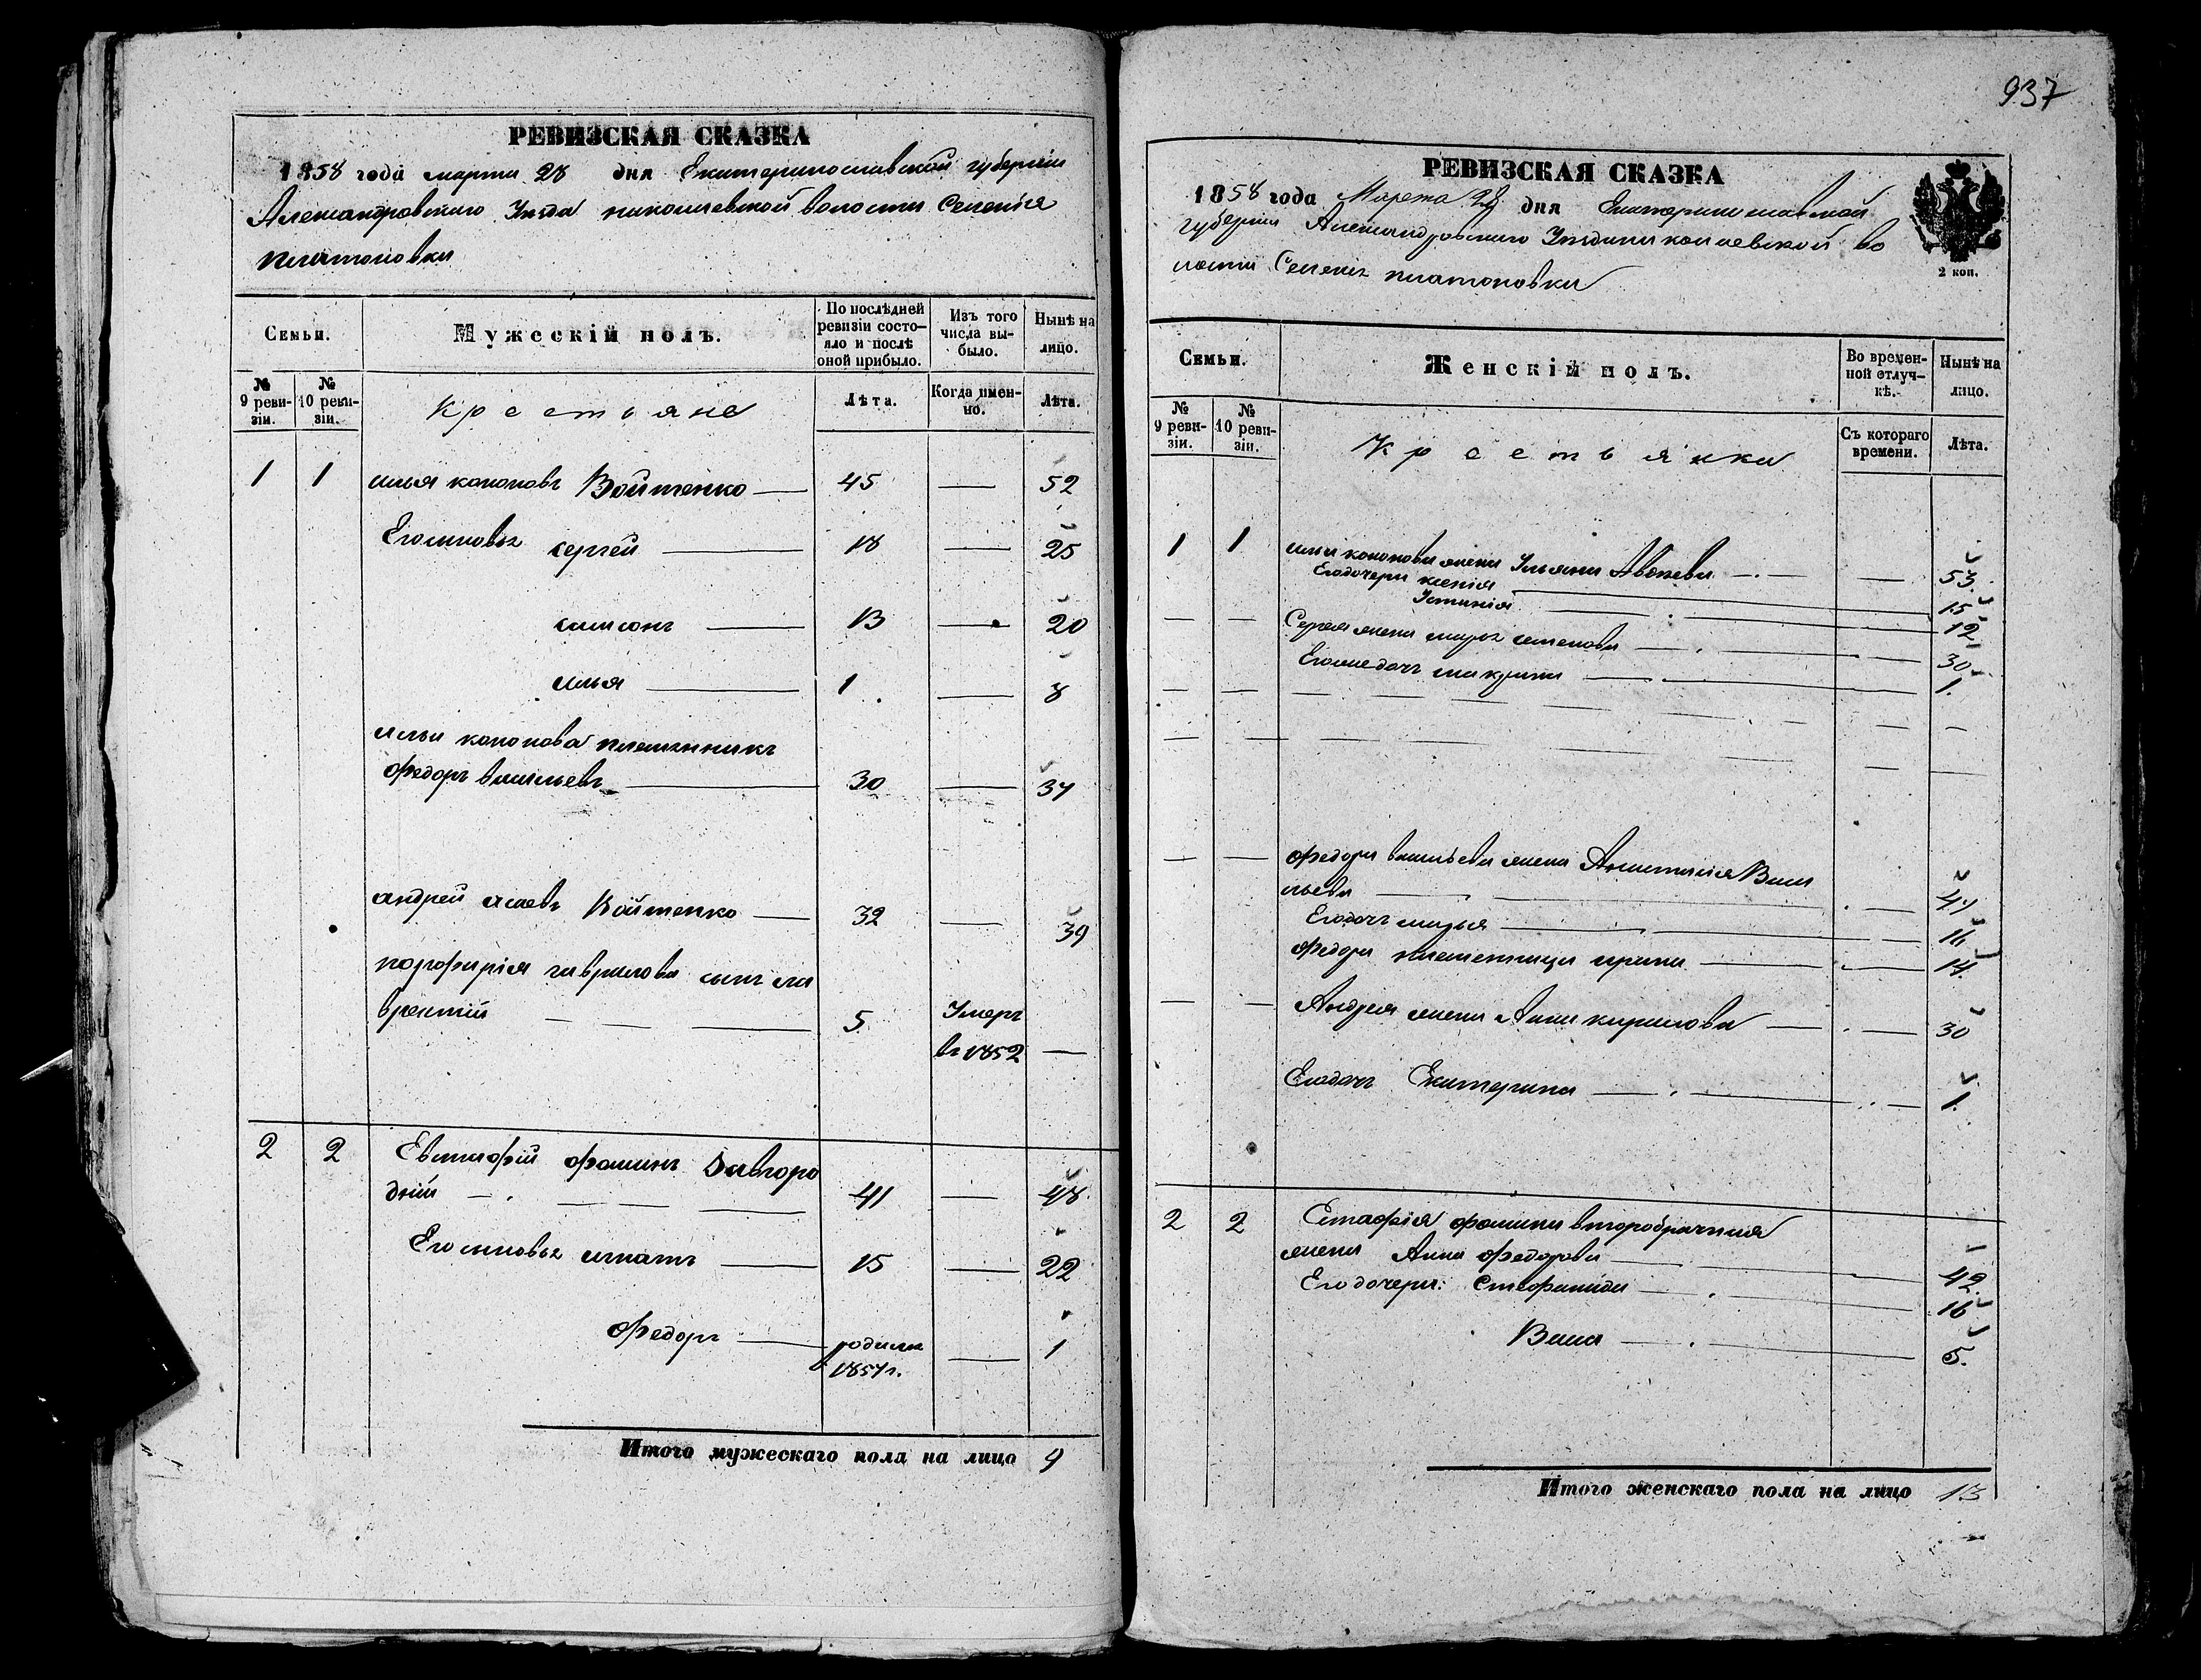 РЕВИЗСКАЯ СКАЗКА
1858 года марта 28 дня Екатеринославской губернiи
Александровскаго Уезда николаевской волости Селенiя
платоновки
Семьи.
Мужескiй полъ.
По послѣдней ревизiи состояло и послѣ оной прибыло.
Изъ того числа выбыло.
Нынѣ на лицо.
№ 9 ревизiи.
№ 10 ревизiи.
Крестьяне
Лѣта.
Когда именно.
Лѣта.
1 1 илья кононовъ Войтенко 45 — 52
Егосыновья сергей 18 — 25
самсонъ 13 — 20
илья 1 — 8
ильи кононова племянникъ
Федоръ васильевъ 30 — 37
андрей исаевъ Войтенко 32 — 39
порфирiя гаврилова сынъ ла
врентiй 5 Умеръ
въ 1852 —
2 2 Евстафiй фоминъ Завгоро
днiй 41 — 48
Егосыновья игнатъ 15 — 22
Федоръ родился — 1
1857 г.
Итого мужескаго пола на лицо 9
937
РЕВИЗСКАЯ СКАЗКА
1858 года Марта 28 дня Екатеринославской
губернiи Александровскаго Уезда николаевской во
лости Селенiя платоновки
2 коп.
Семьи.
Женскiй полъ.
Во временной отлучкѣ.
Нынѣ на лицо.
№ 9 ревизiи.
№ 10 ревизiи.
Крестьянки
Съ котораго времени.
Лѣта.
1 1 ильи кононова жена Ульяна — 53
Егодочери ксенiя 15
Устинiя 12
Сергея жена марья семенова 30
Егоже дочь макрина 1
Федора васильева жена Анастасiя Васи
льева 47
Егодочь марья 16
Федора племенница ирина 14
Андрея жена Анна кирилова 30
Егодочь Екатерина 1
2 2 Естафiя фомина второбрачная
жена Анна Федорова 42
Егодочери: Стефанида 16
Васса 5
Итого женскаго пола на лицо 13